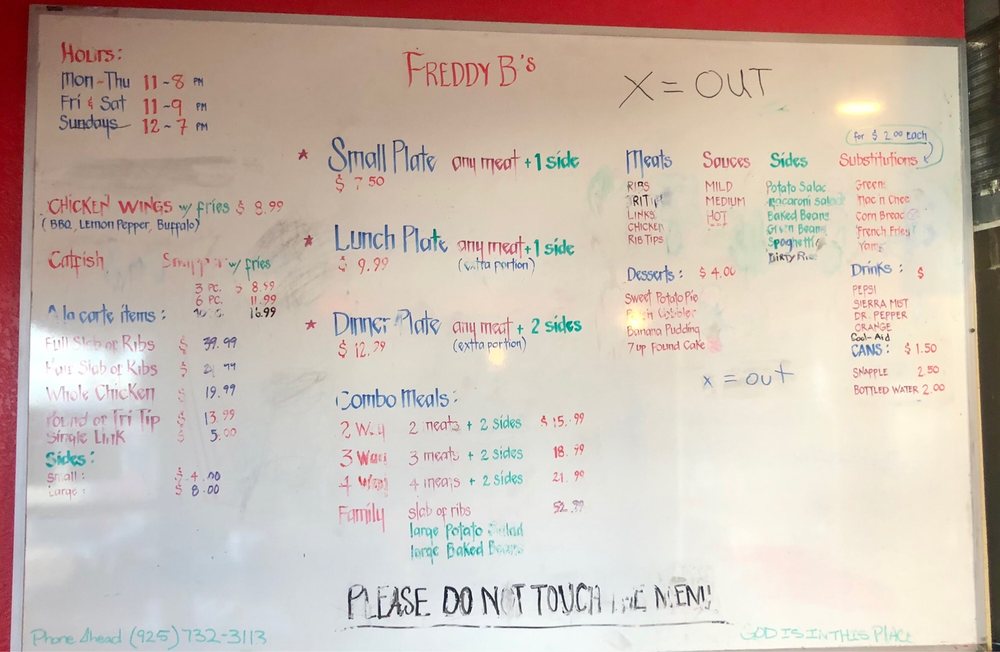 HOURS:
Mon-Thu 11-8 PM
Fri & Sat 11-9 PM
Sundays 12-7 PM
FREDDY B's
X = OUT
CHICKEN WINGS w/ fries $ 8.99
(BBQ, Lemon Pepper, Buffalo)
Catfish w/ fries
3 PC. $ 8.99
6 PC. 11.99
16.99
A la carte items:
Full Slab of Ribs $ 39.99
Slab of Ribs $
Whole Chicken $ 19.99
Pound of Tri Tip $ 13.99
Single Link $ 5.00
Sides:
Small: $ 4.00
Large: $ 8.00
★ Small Plate any meat + 1 side
$ 7.50
★ Lunch Plate any meat + 1 side
$ 9.99 (extra portion)
★ Dinner Plate any meat + 2 sides
$ 12.99 (extra portion)
Combo Meals:
2 Way 2 meats + 2 sides $ 15.99
3 Way 3 meats + 2 sides 18.99
4 Way 4 meats + 2 sides 21.99
Family slab of ribs
large Potato Salad
large Baked Beans
Meats
RIBS
TRI TIP
LINKS
CHICKEN
RIB TIPS
Sauces
MILD
MEDIUM
HOT
Sides
Potato Salad
Macaroni Salad
Baked Beans
Green Beans
Spaghetti
Dirty Rice
for $ 2.00 Each
Substitutions
Greens
Mac n Chee
Corn Bread
French Fries
Yams
Desserts: $ 4.00
Sweet Potato Pie
Cobbler
Banana Pudding
7 up Pound Cake
Drinks: $
PEPSI
SIERRA MIST
DR. PEPPER
ORANGE
Cool-Aid
CANS: $ 1.50
SNAPPLE 2.50
BOTTLED WATER 2.00
x = out
PLEASE DO NOT TOUCH THE MENU
Phone Ahead (925) 732-3113
GOD IS IN THIS PLACE